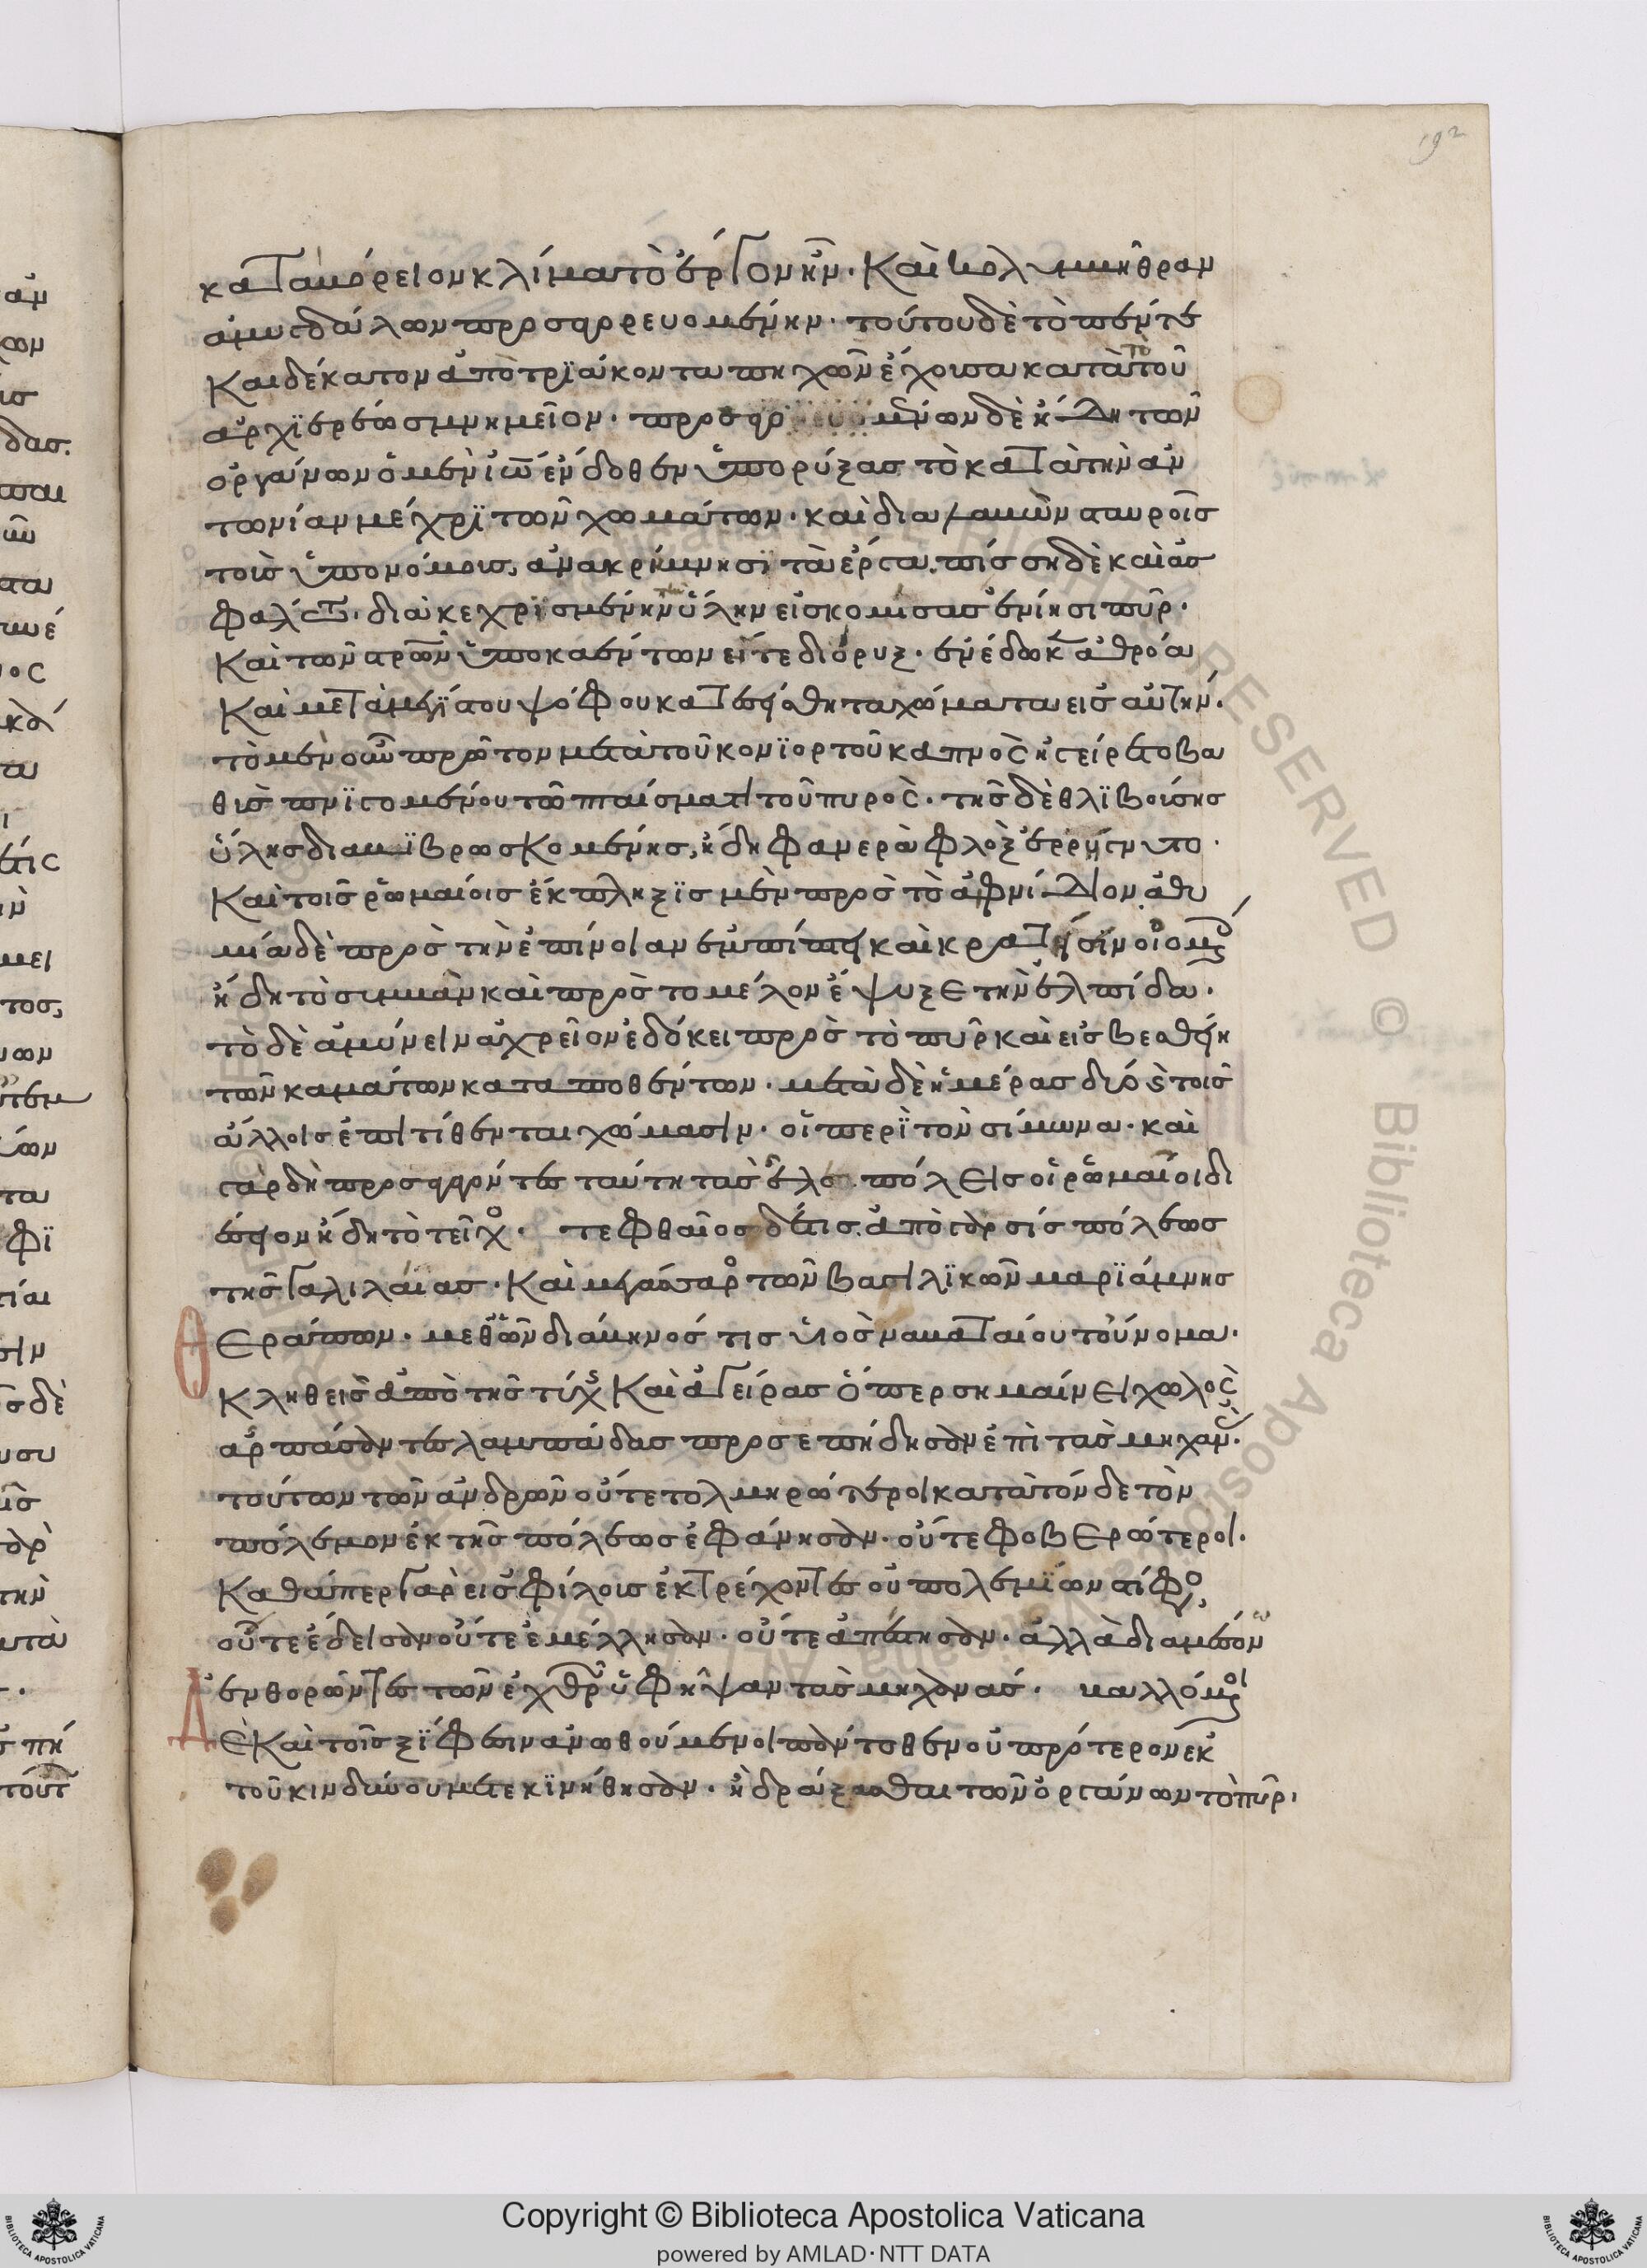 192
κατα βόρειον κλίμα τὸ ἔργον ἦν. Καὶ κολυμβήθραν
ἀμυγδάλων προσαγορευομένην. τούτου δὲ τὸ πεντε
Καιδέκατον ἀπὸ τριάκοντα πηχῶν ἔχουσα κατὰ τὸ τοῦ
ἀρχιερέως μνημεῖον. προσαγομένων δὲ ἤδη τῶν
ὀργάνων ὁ μὲν ἰω ἔνδοθεν ὑπορύξας τὸ κατὰ τὴν ἀν
τωνίαν μέχρι τῶν χωμάτων. καὶ διαλαβὼν σταυροῖς
τοὺς ὑπονόμους, ἀνακρίμνησι τὰ ἔργα. πίσσῃ δὲ καὶ ἀσ
φάλτῳ. διακεχρισμένην ὕλην εἰσκομίσας ἐνίησι πῦρ.
Καὶ τῶν σταυρῶν ὑποκαέντων εἴτε διόρυξ. ἐνέδωκ ἀθρόα
Καὶ μετὰ μεγίστου ψόφου κατεσείσθη τα χώματα εἰς αὐτήν.
τὸ μὲν οὖν πρῶτον μετὰ τοῦ κονιορτοῦ καπνὸς ἠγείρετο βα
θὺς πνιγομένου τῶ πταίσματι τοῦ πυρός. τῆς δὲ θλιβούσης
ὕλης διαβιβρωσκομένης, ἤδη φανερὰ φλὸξ ἐρρήγνυτο.
Καὶ τοῖς ῥωμαίοις ἔκπληξις μὲν πρὸς τὸ αἰφνίδιον ἀθυ
μία δὲ πρὸς τὴν ἐπίνοιαν ἐμπίπτει καὶ κρατήσειν οἰομέν
ἤδη τὸ συμβὰν καὶ πρὸς το μέλον ἔψυξε τὴν ἐλπίδα.
τὸ δὲ ἀμύνειν ἀχρεῖον ἐδόκει πρὸς τὸ πῦρ καὶ εἰ σβεσθείη
τῶν χωμάτων καταποθέντων. μετὰ δὲ ἡμέρας δύο καὶ τοῖς
ἄλλοις ἐπιτίθενται χώμασιν. οἱ περὶ τὸν σίμωνα. καὶ
γὰρ δὴ προσαγαγόντες ταύτη τὰς ἑλεπόλεις οἱ ῥωμαῖοι δι
έσειον ἤδη τὸ τεῖχος. τεφθαῖος δέτις. ἀπὸ γάρσις πόλεως
τῆς Γαλιλαίας. Καὶ μεγάσσαρος τῶν βασιλικῶν μαριάμμης
θεράπων. μεθ' ὧν διάβηνός τις υἱὸς ναβαταίου τοὔνομα.
Κληθεὶς ἀπὸ τῆς τύχης Καὶ ἀγείρας ὅπερ σημαίνει χωλὸς
ἁρπάσαντες λαμπάδας προσεπήδησαν ἐπὶ τὰς μηχαν.
τούτων τῶν ἀνδρῶν οὔτε τολμηρότεροι κατὰ τόνδε τὸν
πόλεμον ἐκ τῆς πόλεως ἐφάνησαν. οὔτε φοβερώτεροι.
Καθάπερ γὰρ εἰς φίλους ἐκτρέχοντες οὐ πολεμίων στίφος,
οὔτε ἔδεισαν οὔτε ἐμέλλησαν. οὔτε ἀπέστησαν. ἀλλὰ διαμέσων
ἐνθορόντες τῶν ἐχθρῶν ὑφῆψαν τὰς μηχανάς. βαλλόμενοι
δὲ Καὶ τοῖς ξίφεσιν ἀνωθούμενοι πάντοθεν οὐ πρότερον ἐκ
τοῦ κινδύνου μετεκινήθησαν. ἢ δράξασθαι τῶν ὀργάνων τὸ πῦρ.
Copyright © Biblioteca Apostolica Vaticana
powered by AMLAD·NTT DATA